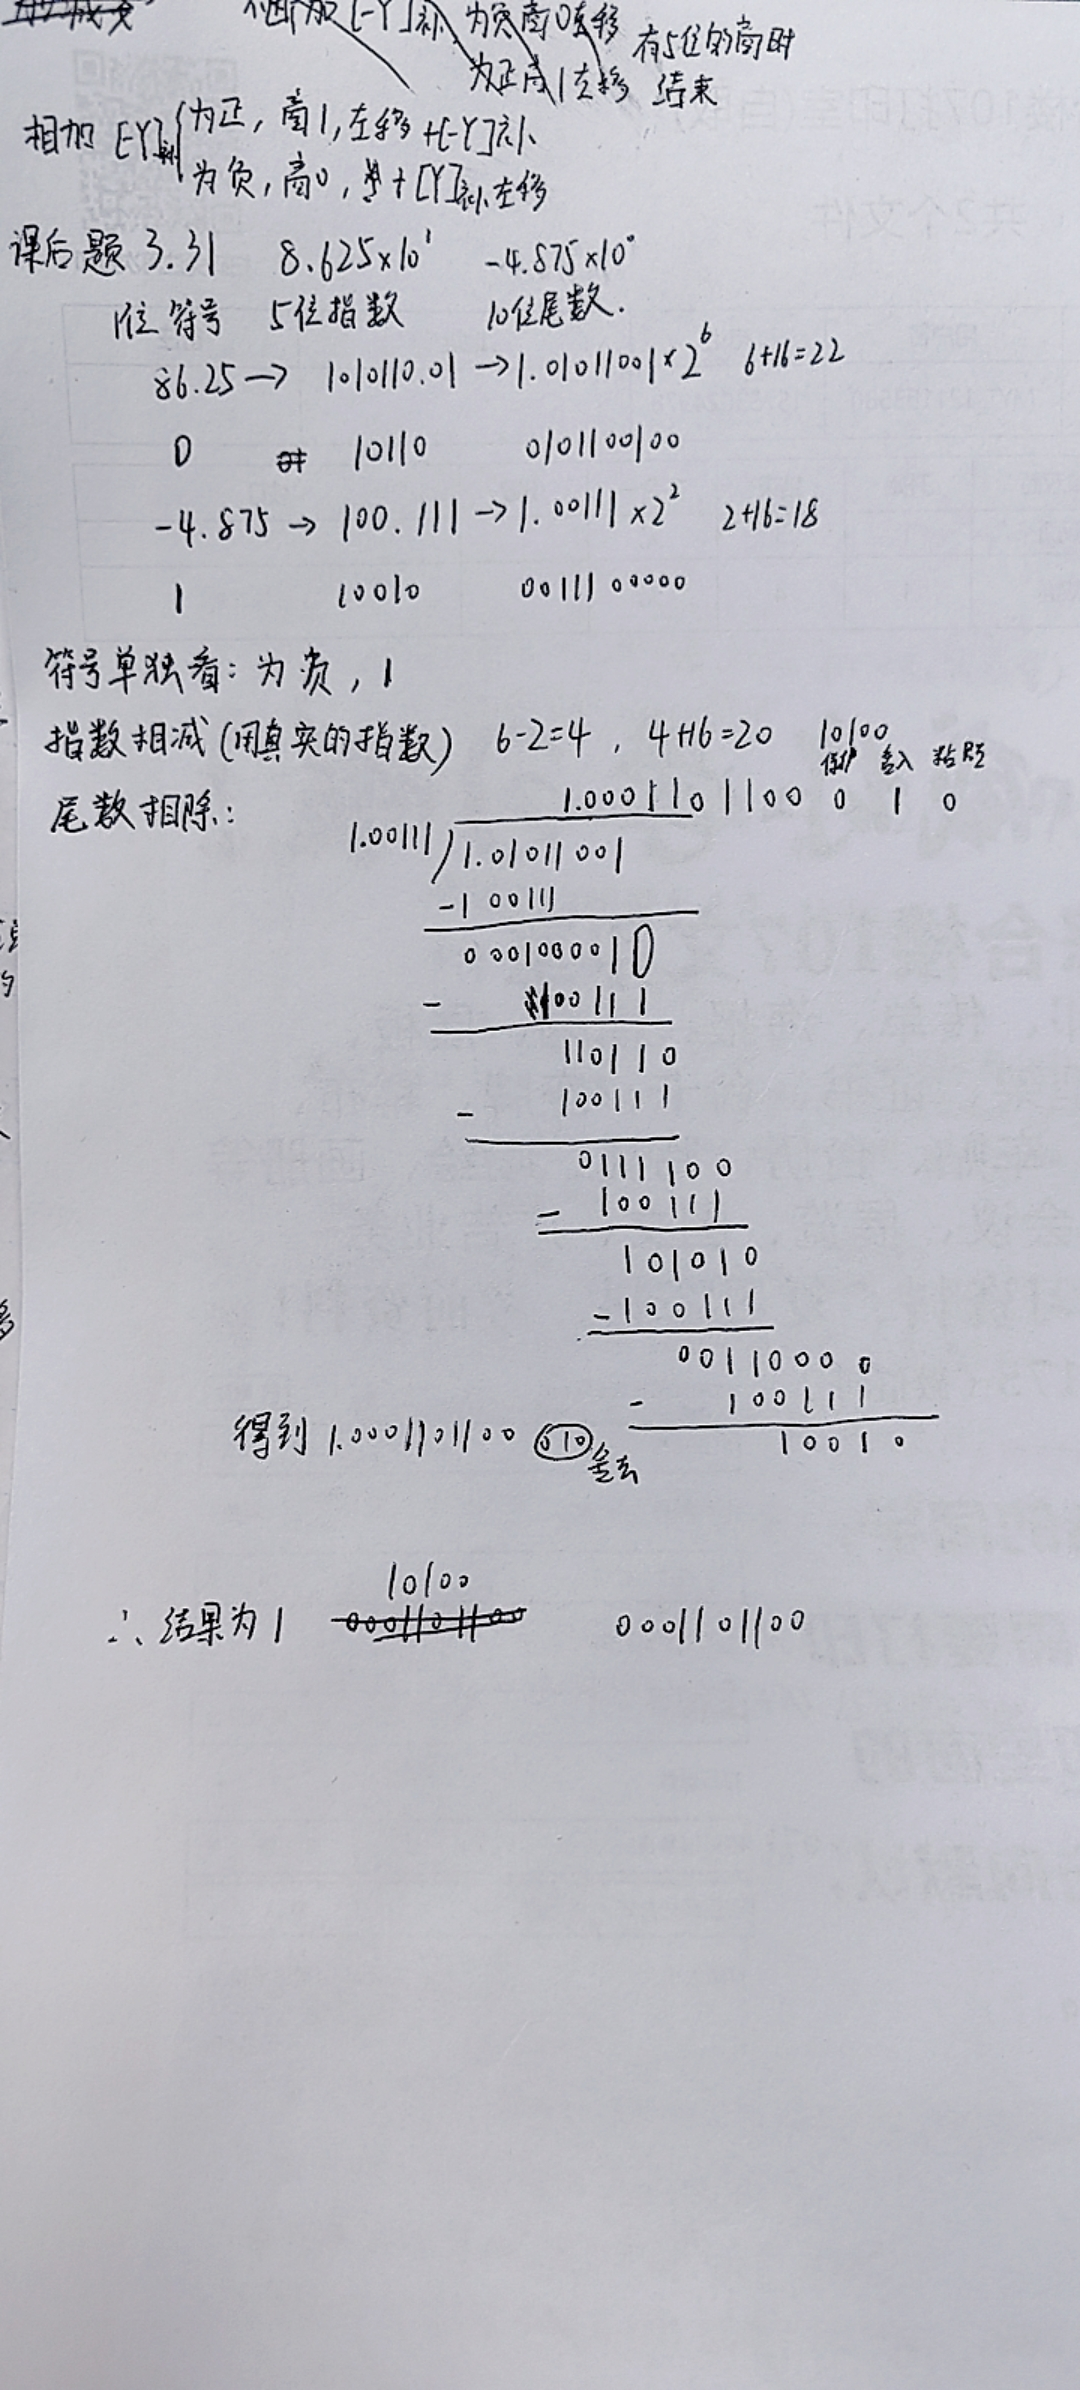 加[-Y]补, 为负商0左移 有5位的商时
为正商1左移 结束
相加 [-Y]补 为正, 商1, 左移 +[-Y]补
为负, 商0, + [Y]补 左移
课后题 3.31 8.625×10¹ -4.875×10⁰
1位 符号 5位指数 10位尾数.
86.25 → 1010110.01 → 1.01011001×2⁶ 6+16=22
0 10110 0101100100
-4.875 → 100.111 → 1.00111×2² 2+16=18
1 10010 0011100000
符号单独看: 为负, 1
指数相减(用真实的指数) 6-2=4, 4+16=20 10100
保护 舍入 粘贴
尾数相除: 1.0001101100 0 1 0
1.00111 1.01011001
-1 00111
0001000010
- 100111
110110
- 100111
0111100
- 100111
101010
-100111
00110000
- 100111
10010
得到 1.0001101100 010 舍去
10100
∴ 结果为 1 0001101100 0001101100